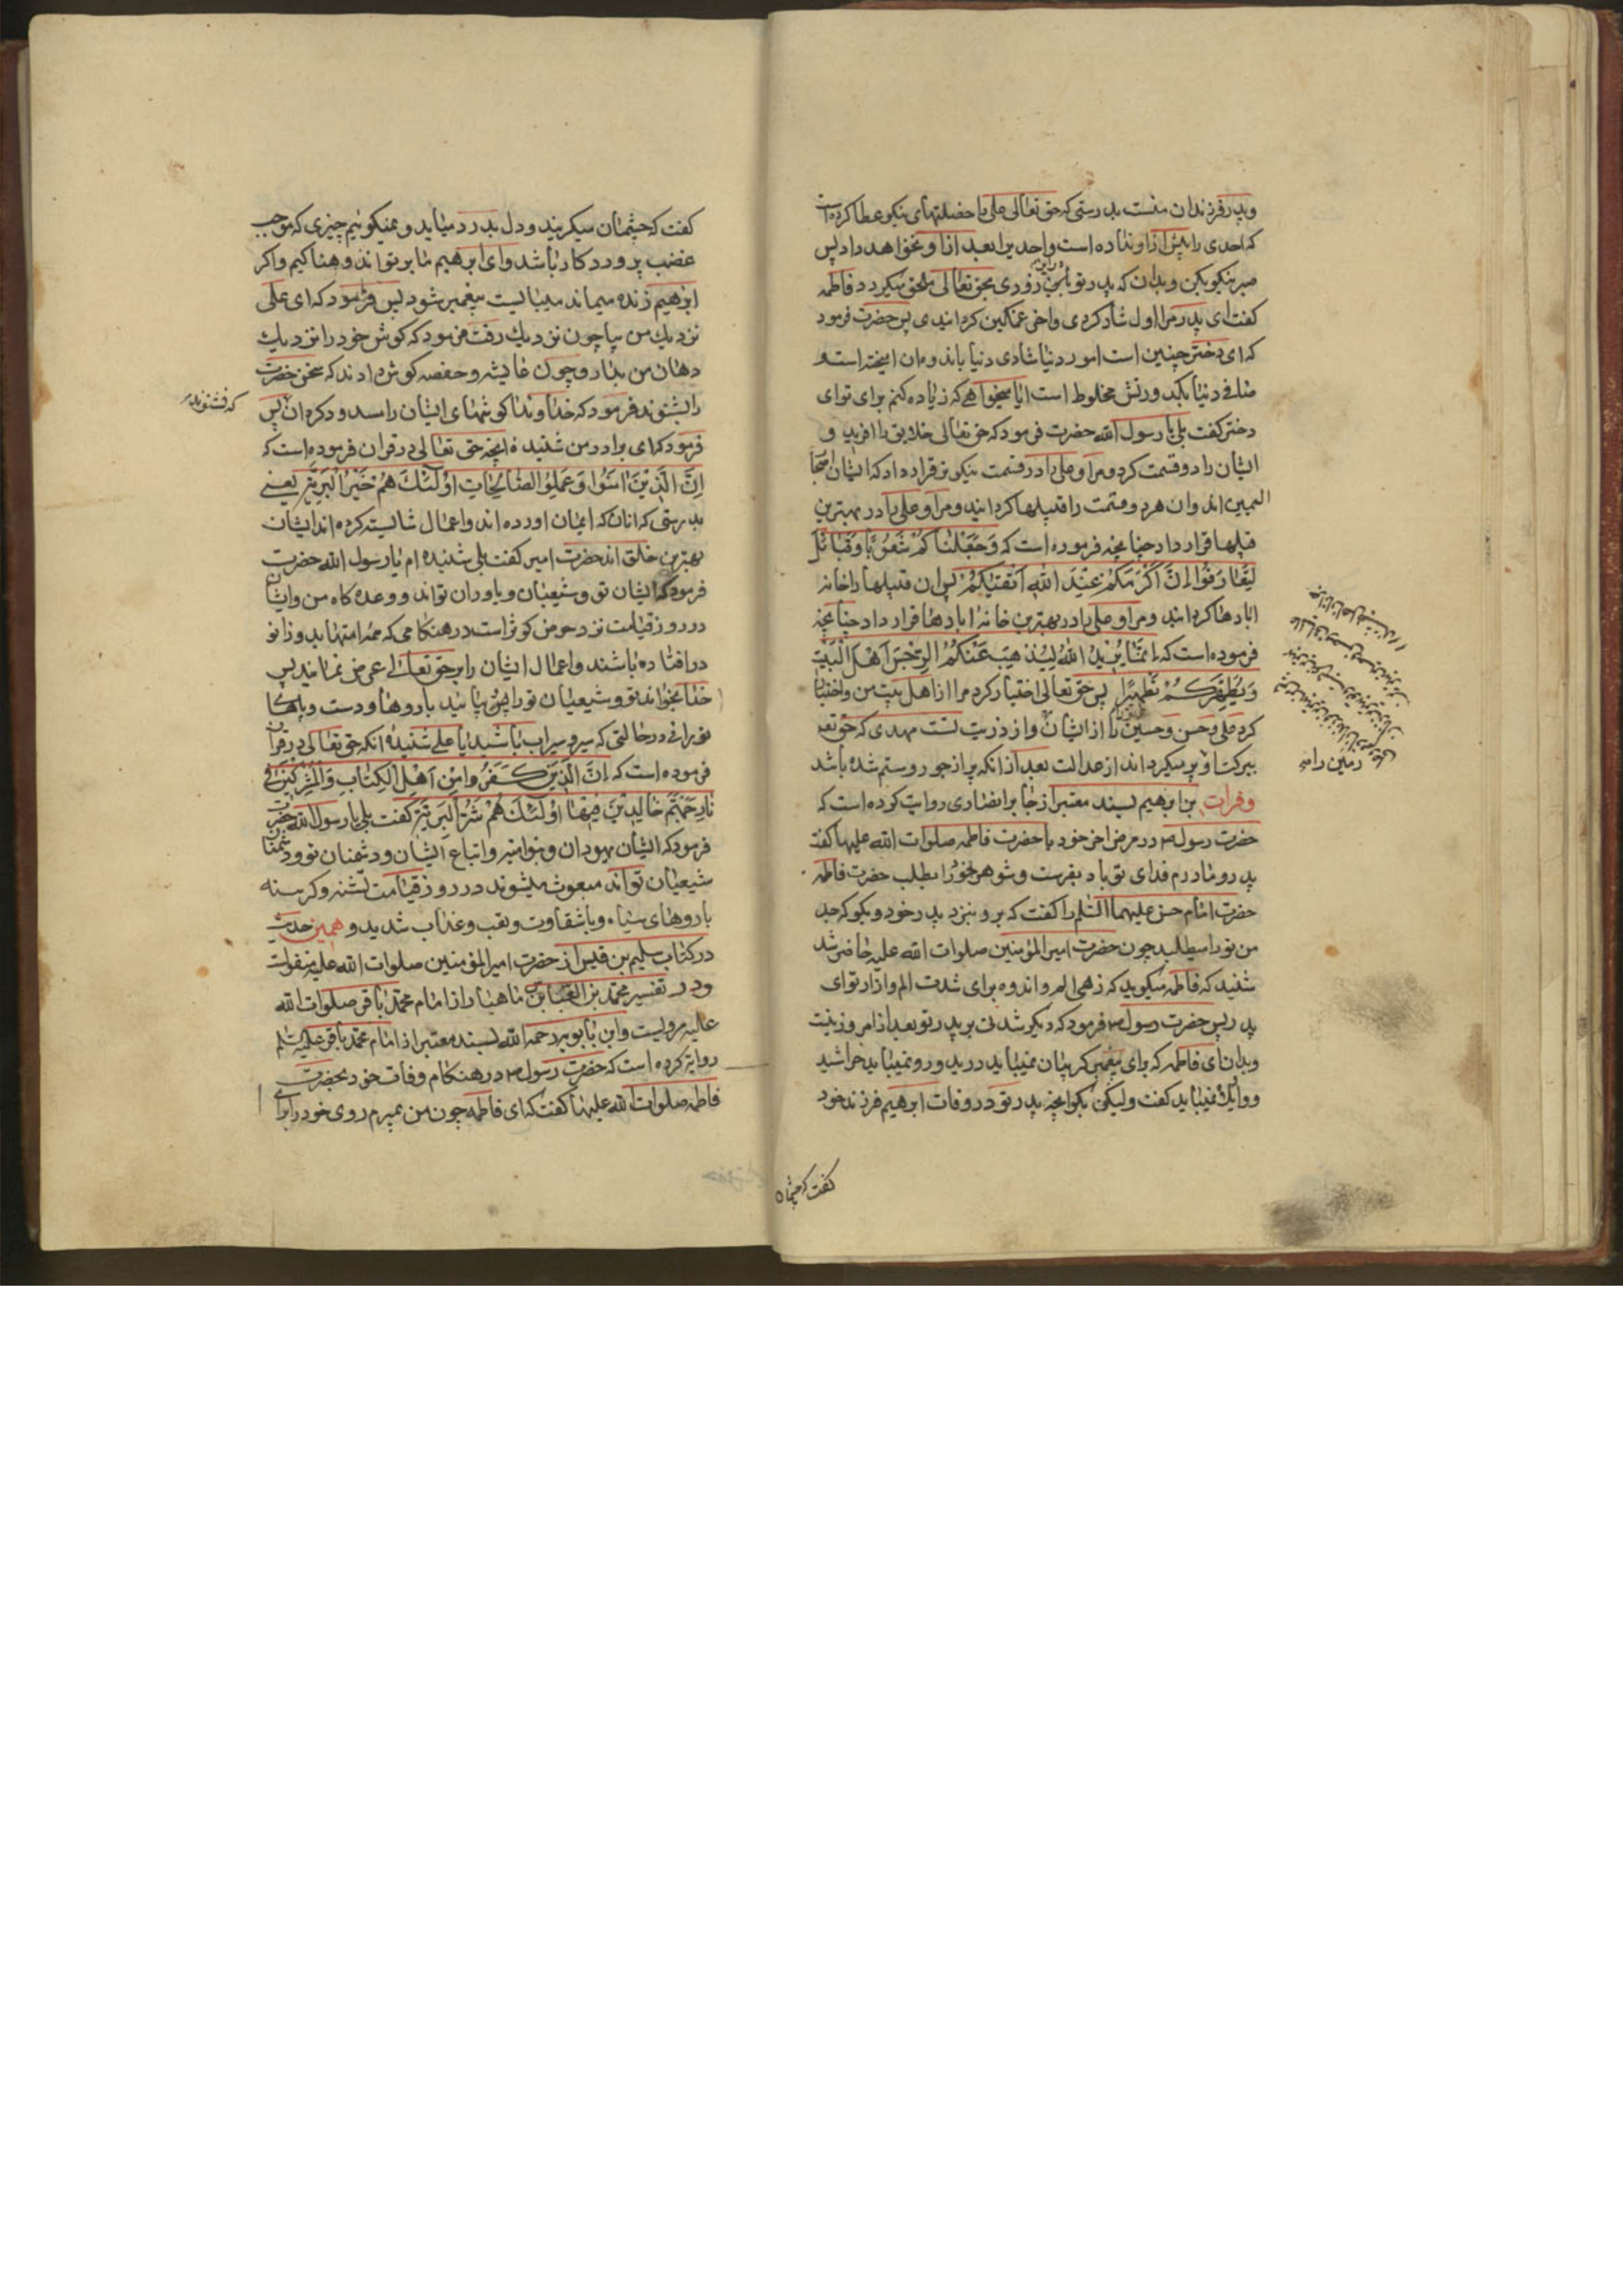 وپدر فرزندان منست بدرستی که حق تعالی علی را خصلتهای نیکو عطا کرده است
که احدی را پیش ازو نداده است واحدیرا بعد ازو نخواهد داد پس
صبر نیکو بکن وبدان که پدر تو بزودی بحق تعالی ملحق میکردد فاطمه
کفت ای پدر مرا اول شاد کردی واخر غمکین کردانیدی پس حضرت فرمود
که ای دختر چنین است امور دنیا شادی دنیا باندوه ان امیخته است و
صافی دنیا بکدورتش مخلوط است ایا میخواهی که زیاده کنم برای توای
دختر کفت بلی یا رسول الله حضرت فرمود که حق تعالی خلایق را افرید و
ایشان را دو قسمت کرد ومرا وعلی را در قسمت نیکوتر قرار داد که ایشان اصحاب
الیمین اند وان هر دو قسمت را قبیلها کردانید ومرا وعلی را در بهترین
قبیلها قرار داد چنانچه فرموده است که وَجَعَلْنَاكُمْ شُعُوبًا وَقَبَائِلَ
لِتَعَارَفُوا اِنَّ اَكْرَمَكُمْ عِنْدَ اللهِ اَتْقَيٰكُمْ پس ان قبیلها را خانه
ابادها کردانید ومرا وعلی را در بهترین خانه ابادها قرار داد چنانچه
فرموده است که اِنَّمَا يُرِيدُ اللهُ لِيُذْهِبَ عَنْكُمُ الرِّجْسَ اَهْلَ الْبَيْتِ
وَيُطَهِّرَكُمْ تَطْهِيرًا پس حق تعالی اختیار کرد مرا از اهل بیت من واختیار
کرد علی وحسن وحسین را از ایشان واز ذریت تست مهدی که حق تعالی
ببرکت او پر میکرداند از عدالت بعد از انکه پر از جور وستم شده باشد
وفرات بن ابرهیم بسند معتبر از جابر انصاری روایت کرده است که
حضرت رسول ص در مرض اخر خود با حضرت فاطمه صلوات الله علیها کفت
پدر ومادرم فدای تو باد بفرست وشوهر خود را بطلب حضرت فاطمه
حضرت امام حسن علیهما السلم را کفت که برو بنزد پدر خود وبکو که جد
من تو را میطلبد چون حضرت امیر المؤمنین صلوات الله علیه حاضر شد
شنید که فاطمه میکوید که زهی الم واندوه برای شدت الم وازار توای
پدر پس حضرت رسول ص فرمود که دیکر شدتی بر پدر تو بعد از امروز نیست
وبدان ای فاطمه که برای پیغمبر کریبان نمیباید درید ورو نمیباید خراشید
وواویلا نمیباید کفت ولیکن بکو انچه پدر تو در وفات ابرهیم فرزند خود
زمین را
کفت که چشمان
کفت که چشمان میکریند ودل بدرد میاید ونمیکوئیم چیزی که موجب
غضب پروردکار باشد وای ابرهیم ما بر تو اندوهناکیم واکر
ابرهیم زنده میماند میبایست پیغمبر شود پس فرمود که ای علی
نزدیك من بیا چون نزدیك رفت فرمود که کوش خود را نزدیك
دهان من بدار وچون عایشه وحفصه کوش دادند که سخن حضرت
را بشنوند فرمود که خداوندا کوشهای ایشان را سد ودکردان پس
که نشنوند
فرمود که ای برادر من شنیده انچه حق تعالی در قران فرموده است که
اِنَّ الَّذِيْنَ اٰمَنُوا وَعَمِلُوا الصَّالِحَاتِ اُولَئِكَ هُمْ خَيْرُ الْبَرِيَّةِ یعنی
بدرستی که انان که ایمان اورده اند واعمال شایسته کرده اند ایشان
بهترین خلق اند حضرت امیر کفت بلی شنیده ام یا رسول الله حضرت
فرمود که ایشان تو وشیعیان ویاوران تواند ووعده کاه من وایشان
در روز قیامت نزد حوض کوثر است در هنکامی که همه امتها بدو زانو
درافتاده باشند واعمال ایشان را بر حق تعالی عرض نمایند پس
خدا بخواند تو وشیعیان تو را پس بیائید با روها ودست وپاهای
نورانی در حالتی که سیر وسیراب باشید یا علی شنیده انکه حق تعالی در قران
فرموده است که اِنَّ الَّذِيْنَ كَفَرُوا مِنْ اَهْلِ الْكِتَابِ وَالْمُشْرِكِيْنَ فِي
نَارِ جَهَنَّمَ خَالِدِيْنَ فِيْهَا اُولَئِكَ هُمْ شَرُّ الْبَرِيَّةِ کفت بلی یا رسول الله حضرت
فرمود که ایشان یهودان وبنو امیه واتباع ایشان ودشمنان تو ودشمنان
شیعیان تواند مبعوث میشوند در روز قیامت تشنه وکرسنه
با روهای سیاه وبا شقاوت وتعب وعذاب شدید و همین حدیث
در کتاب سلیم بن قیس از حضرت امیر المؤمنین صلوات الله علیه منقولست
ودر تفسیر محمد بن العباس ماهیار از امام محمد باقر صلوات الله
علیه مرویست وابن بابویه رحمه الله بسند معتبر از امام محمد باقر علیه السلم
روایة کرده است که حضرت رسول ص در هنکام وفات خود بحضرت
فاطمه صلوات الله علیها کفت که ای فاطمه چون من بمیرم روی خود را برای